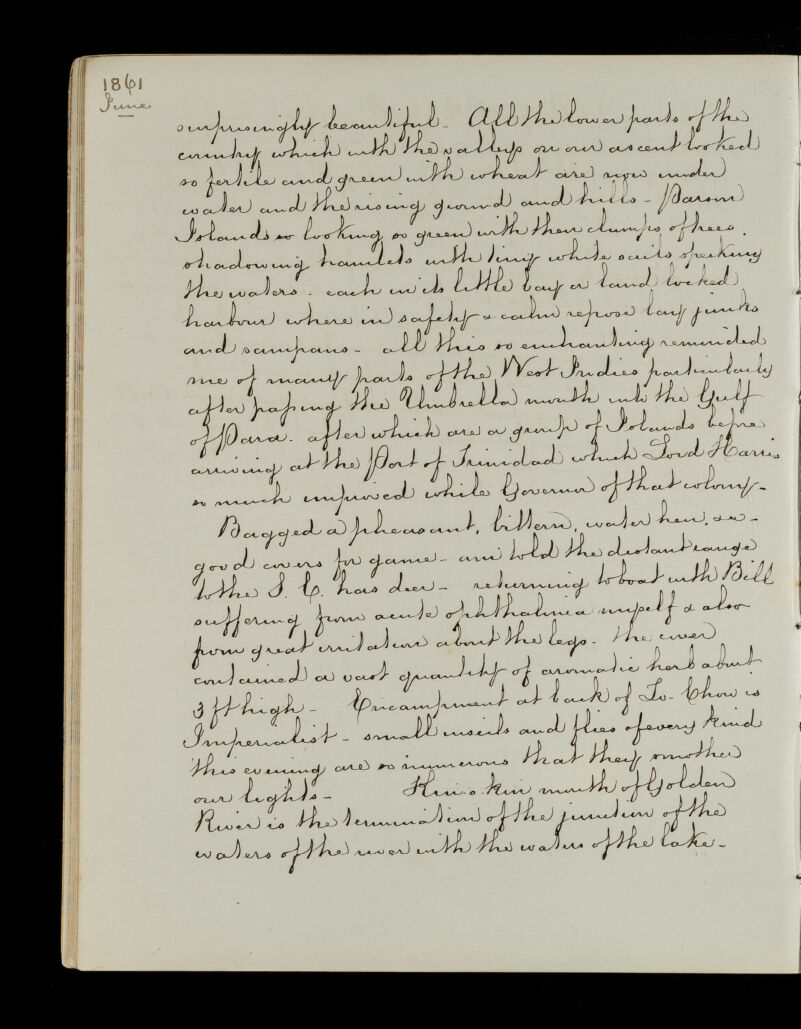 1861
June
surprisingly beautiful - All the lower parts of the
country which with the valleys on our ascent looked
so fertile and green with wheat are now under
water and the rising ground and hills - Parson
Islands so looking so green with their clumps of trees.
shadowing hamlets with tiny white sails specking
the waters - each in its little bay or land locked
harbour where in safety & calm repose lay junks
and sampans - all this so enchanting reminded
me of many parts of the West Indies particularly
after passing the Umbrella mouth into the Gulf
of Para. after which are a group of Islands before
arriving at the Port of Trinidad which Lord Harris
so much improved while Governor of that colony -
Bagged a pheasant, bittern, water hen, &c -
good covers for game - am told the distant range
to the S. E. has deer - returning to boat with Bill
suffering from acute ophthalmia myself & also
from great irritation about the legs - the cover
contained a vast quantity of aromatic herb about
3 ft high - Encampment at back of Chow is
Imperialist - small insects and flies of every kind
this evening are so numerous that they smother
our lights - mouth of Golden
River is the termination of the junction of the
waters of the river with the waters of the lake -